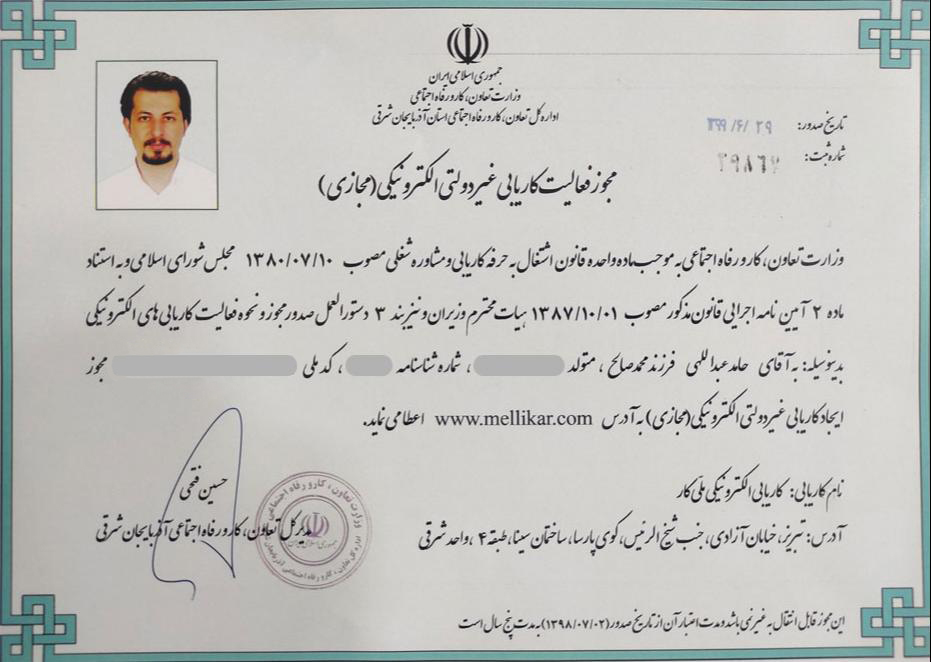 جمهوری اسلامی ایران
وزارت تعاون، کار و رفاه اجتماعی
اداره کل تعاون، کار و رفاه اجتماعی استان آذربایجان شرقی
تاریخ صدور: ۳۹۹/۶/۲۹
شماره ثبت:
مجوز فعالیت کاریابی غیر دولتی الکترونیکی (مجازی)
وزارت تعاون، کار و رفاه اجتماعی به موجب ماده واحده قانون اشتغال به حرفه کاریابی و مشاوره شغلی مصوب ۱۳۸۰/۰۷/۱۰ مجلس شورای اسلامی و به استناد
ماده ۲ آیین نامه اجرایی قانون مذکور مصوب ۱۳۸۷/۱۰/۰۱ هیات محترم وزیران و نیز بند ۳ دستورالعمل صدور مجوز و نحوه فعالیت کاریابی های الکترونیکی
بدینوسیله: به آقای حامد عبداللهی فرزند محمد صالح ، متولد ، شماره شناسنامه ، کد ملی مجوز
ایجاد کاریابی غیر دولتی الکترونیکی (مجازی) به آدرس www.mellikar.com اعطا می نماید.
نام کاریابی: کاریابی الکترونیکی ملی کار
آدرس: تبریز، خیابان آزادی، جنب شیخ الرئیس، کوی پارسا، ساختمان سینا، طبقه ۴ ، واحد شرقی
حسین فتحی
مدیر کل تعاون، کار و رفاه اجتماعی آذربایجان شرقی
وزارت تعاون، کار و رفاه اجتماعی
جمهوری اسلامی ایران
اداره کل تعاون، کار و رفاه اجتماعی آذربایجان
این مجوز قابل انتقال به غیر نمی باشد و مدت اعتبار آن از تاریخ صدور (۱۳۹۸/۰۷/۰۲) به مدت پنج سال است